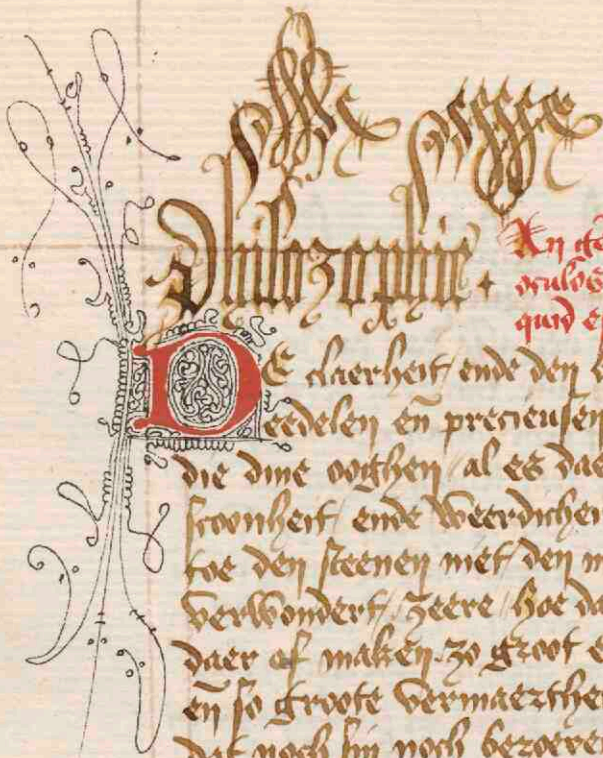 Philozophie.
An ge
oculos
quid e
DE claerheit / ende den
eedelen en̄ precieusen
die dine ooghen / al es dae
scoonheit / ende weerdichei
toe den steenen niet / den m
verwondert / zeere / hoe da
daer of maken. zo groot e
en̄ so groote vermaerthe
dat noch hu noch beroere